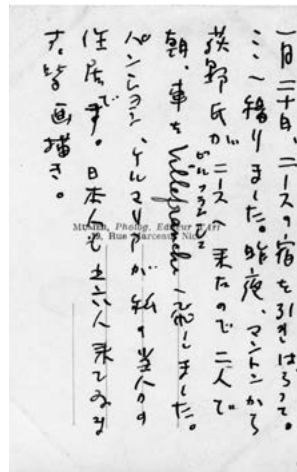 一月二十日、ニースの宿を引きはらって。
ここへ移りました。昨夜、マントンから
荻野氏がニースへ来たので二人で
朝、車を Villefranche ビルフランシュ へ飛しました。
パンション、ゲルマリアが私の当分の
住居です。日本人も五六人来てゐます
皆画描き。
MUMER, Photog, Editeur d'Art
19, Rue Marceau, Nice